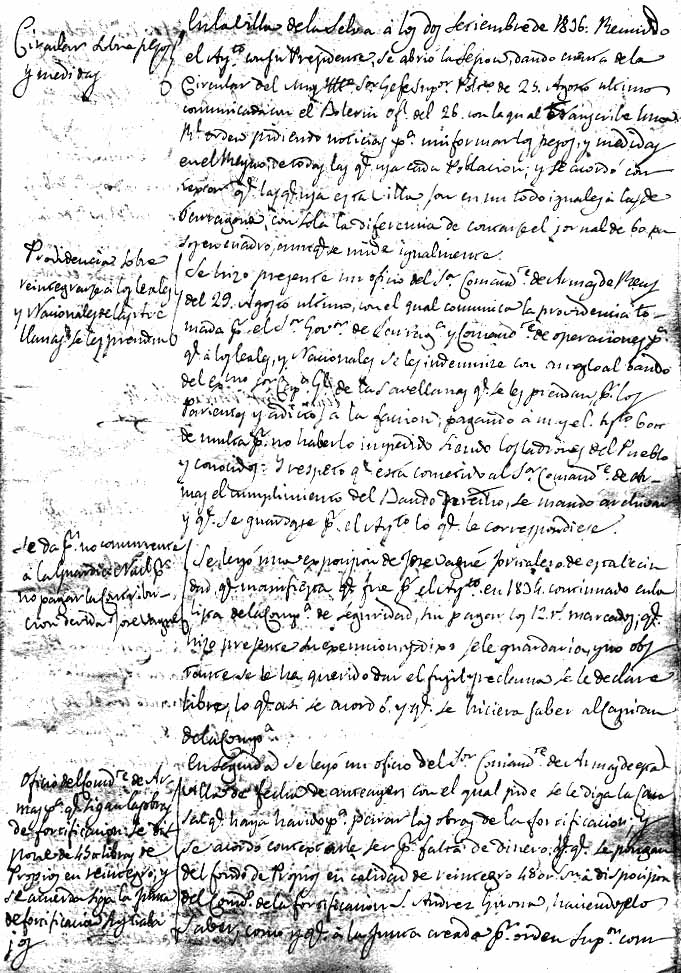 Circular sobre pesos
y medidas
En la villa de la Selva a los dos Setiembre de 1836. Reunido
el Ayto con su Presidente, se abrió la sesion, dando cuenta de la
Circular del Muy Sor Gefe Supor Polco de 25 Agosto ultimo
comunicada con el Boletin ofl del 26, con la qual transcribe una
Rl orden pidiendo noticias pa uniformar los pesos, y medidas
en el Reyno, de todas las qe usa cada Poblacion; y se acordó con
testar qe las qe usa esta Villa son en un todo iguales a las de
Tarragona, con sola la diferencia de contarse el jornal de 60 pa
sos en cuadro, aunqe se mide igualmente.
Providencia sobre
reintegrarse a los leales
y Nacionales de las
se les prendan
Se hizo presente un oficio del Sor Comande de Armas de Reus
del 29 Agosto ultimo, con el qual comunica la providencia to-
mada pr el Sor Govor de Tarraga y Comande de operaciones pa
qe a los leales, y Nacionales se les indemnice con arreglo al bando
del Exmo Sor Capn Gl de las avellanas qe se les prendan pr los
Parientes y adictos a la faccion, pagando a mas el Ayto
de multa pr no haberlo impedido siendo los ladrones del Pueblo
y conocidos: Y respeto qe está cometido al Sor Comande de Ar-
mas el cumplimiento del Bando se mandó archivar
y qe se guardase pr el Ayto lo qe le correspondiese.
Se da pr no
a la Guardia Nacl pr
no pagar la Contribu-
cion José Vagué
Se leyó una exposicion de José Vagué jornalero de esta vecin
dad qe manifiesta qe fue pr el Ayto en 1834 continuado en la
lista de la Compa de seguridad, sin pagar los 12 rs marcados, qe
hizo presente su exencion, y dixo se le guardaria, y no obs
tante se le ha querido dar el fusil y reclama se le declare
libre, lo qe asi se acordó y qe se hiciera saber al Capitan
de la Compa
Oficio del Comde de Ar-
mas pa qe sigan las obras
de fortificacion. Se dis
pone de 480 libras de
Propios en reintegro, y
se acuerda sepa la Junta
de fortificacion
En seguida se leyó un oficio del Sor Comande de Armas de esta
Villa de fecha de anteayer con el qual pide se le diga la Cau
sa qe haya havido pa parar las obras de la fortificacion: Y
se acordó contestarle ser pr falta de dinero, y qe se pongan
del fondo de Propios en calidad de reintegro 480 a disposicion
del de la fortificacion D. Andres Girona, haciendoselo
saber, como y qe a la Junta creada pr orden Supor com